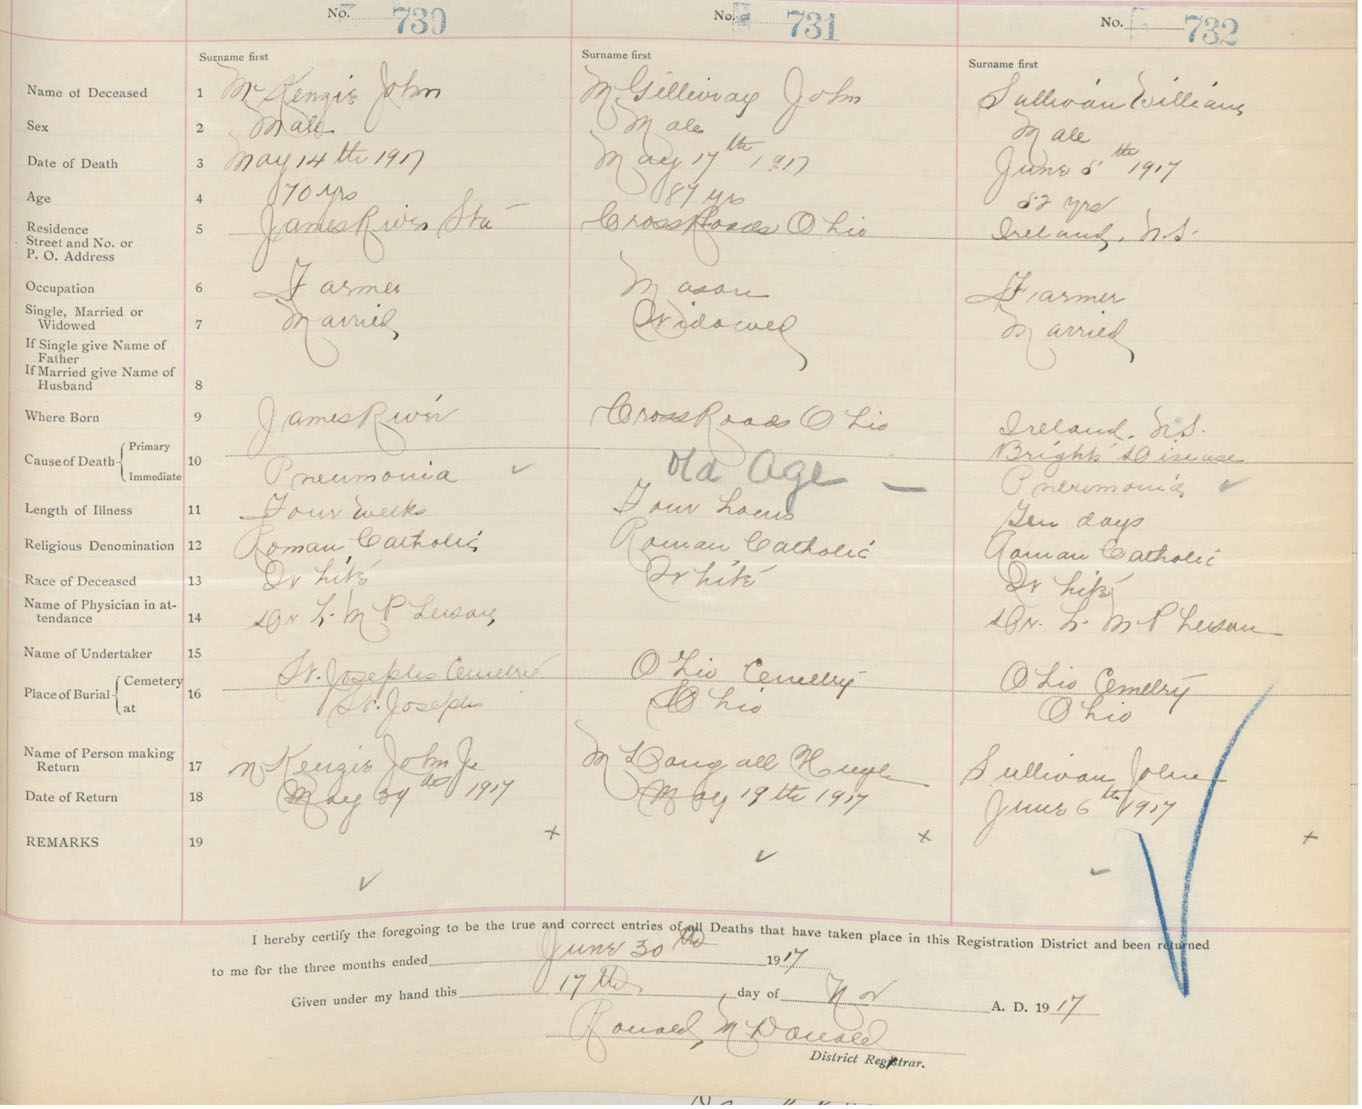 No. 730 No. 731 No. 732
Surname first Surname first Surname first
Name of Deceased 1 McKenzie John McGillivray John Sullivan William
Sex 2 Male Male Male
Date of Death 3 May 14th 1917 May 17th 1917 June 5th 1917
Age 4 70 yrs 87 yrs 82 yrs
Residence Street and No. or P. O. Address 5 James River Sta Cross Roads Ohio Ireland, N.S.
Occupation 6 Farmer Mason Farmer
Single, Married or Widowed 7 Married Widowed Married
If Single give Name of Father
If Married give Name of Husband 8
Where Born 9 James River Cross Roads Ohio Ireland, N.S.
Cause of Death Primary 10 Bright's Disease
Immediate Pneumonia Old Age Pneumonia
Length of Illness 11 Four weeks Four hours Ten days
Religious Denomination 12 Roman Catholic Roman Catholic Roman Catholic
Race of Deceased 13 White White White
Name of Physician in attendance 14 Dr. H. McPherson Dr. H. McPherson
Name of Undertaker 15
Place of Burial Cemetery 16 St. Josephs Cemetry Ohio Cemetry Ohio Cemetry
at St. Josephs Ohio Ohio
Name of Person making Return 17 McKenzie John Jr McDougall Hugh Sullivan John
Date of Return 18 May 29th 1917 May 19th 1917 June 6th 1917
REMARKS 19
I hereby certify the foregoing to be the true and correct entries of all Deaths that have taken place in this Registration District and been returned
to me for the three months ended June 30th 1917
Given under my hand this 17th day of Nov A. D. 1917
Ronald McDonald
District Registrar.